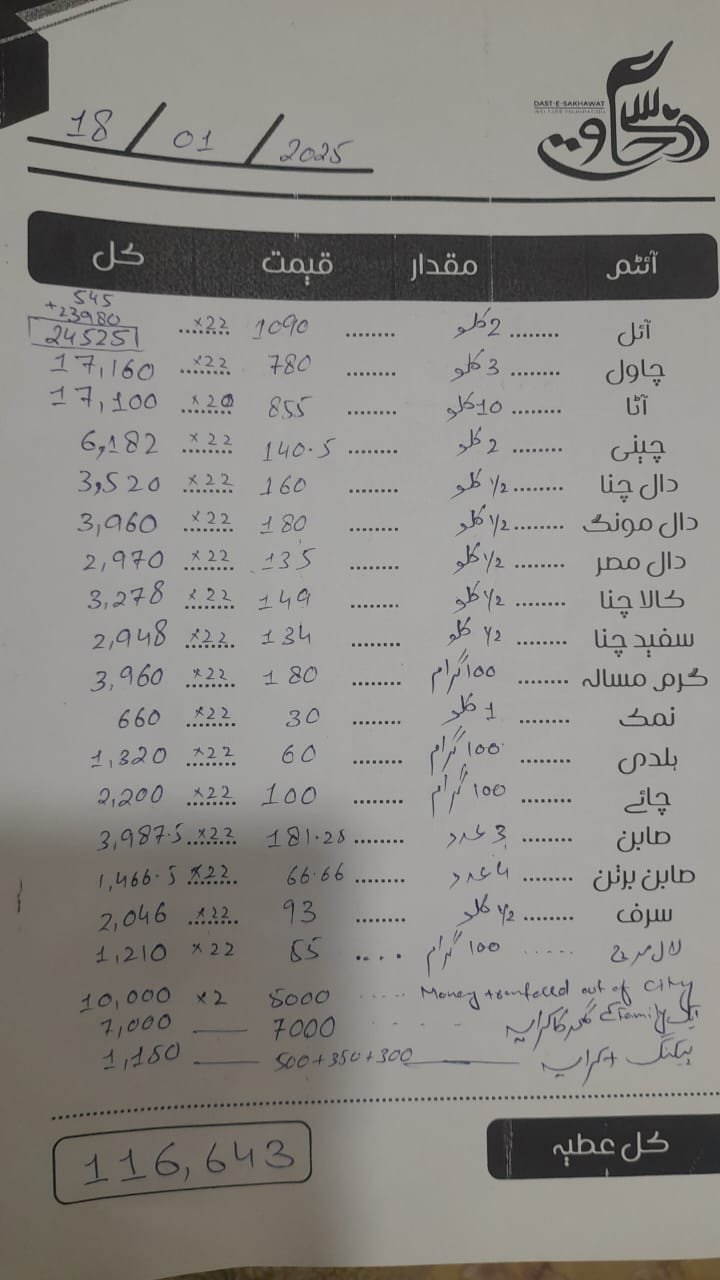 18 / 01 / 2025
DAST-E-SAKHAWAT
WELFARE FOUNDATION
دستِ سخاوت
آئٹم مقدار قیمت کل
545
+23980
آئل ........ 2 کلو ........ 1090 ×22 24525
چاول ........ 3 کلو ........ 780 ×22 17,160
آٹا ........ 10 کلو ........ 855 ×20 17,100
چینی ........ 2 کلو ........ 140.5 ×22 6,182
دال چنا ........ 1/2 کلو ........ 160 ×22 3,520
دال مونگ ........ 1/2 کلو ........ 180 ×22 3,960
دال مصر ........ 1/2 کلو ........ 135 ×22 2,970
کالا چنا ........ 1/2 کلو ........ 149 ×22 3,278
سفید چنا ........ 1/2 کلو ........ 134 ×22 2,948
گرم مسالہ ........ 100 گرام ........ 180 ×22 3,960
نمک ........ 1 کلو ........ 30 ×22 660
ہلدی ........ 100 گرام ........ 60 ×22 1,320
چائے ........ 100 گرام ........ 100 ×22 2,200
صابن ........ 3 عدد ........ 181.25 ×22 3,987.5
صابن برتن ........ 4 عدد ........ 66.66 ×22 1,466.5
سرف ........ 1/2 کلو ........ 93 ×22 2,046
لال مرچ ..... 100 گرام .... 55 ×22 1,210
Money transfeed out of city ..... 5000 ×2 10,000
ایک Family کے گھر کا کرایہ ..... 7000 — 7,000
پیکنگ + کرایہ — 500+350+300 — 1,150
کل عطیہ 116,643